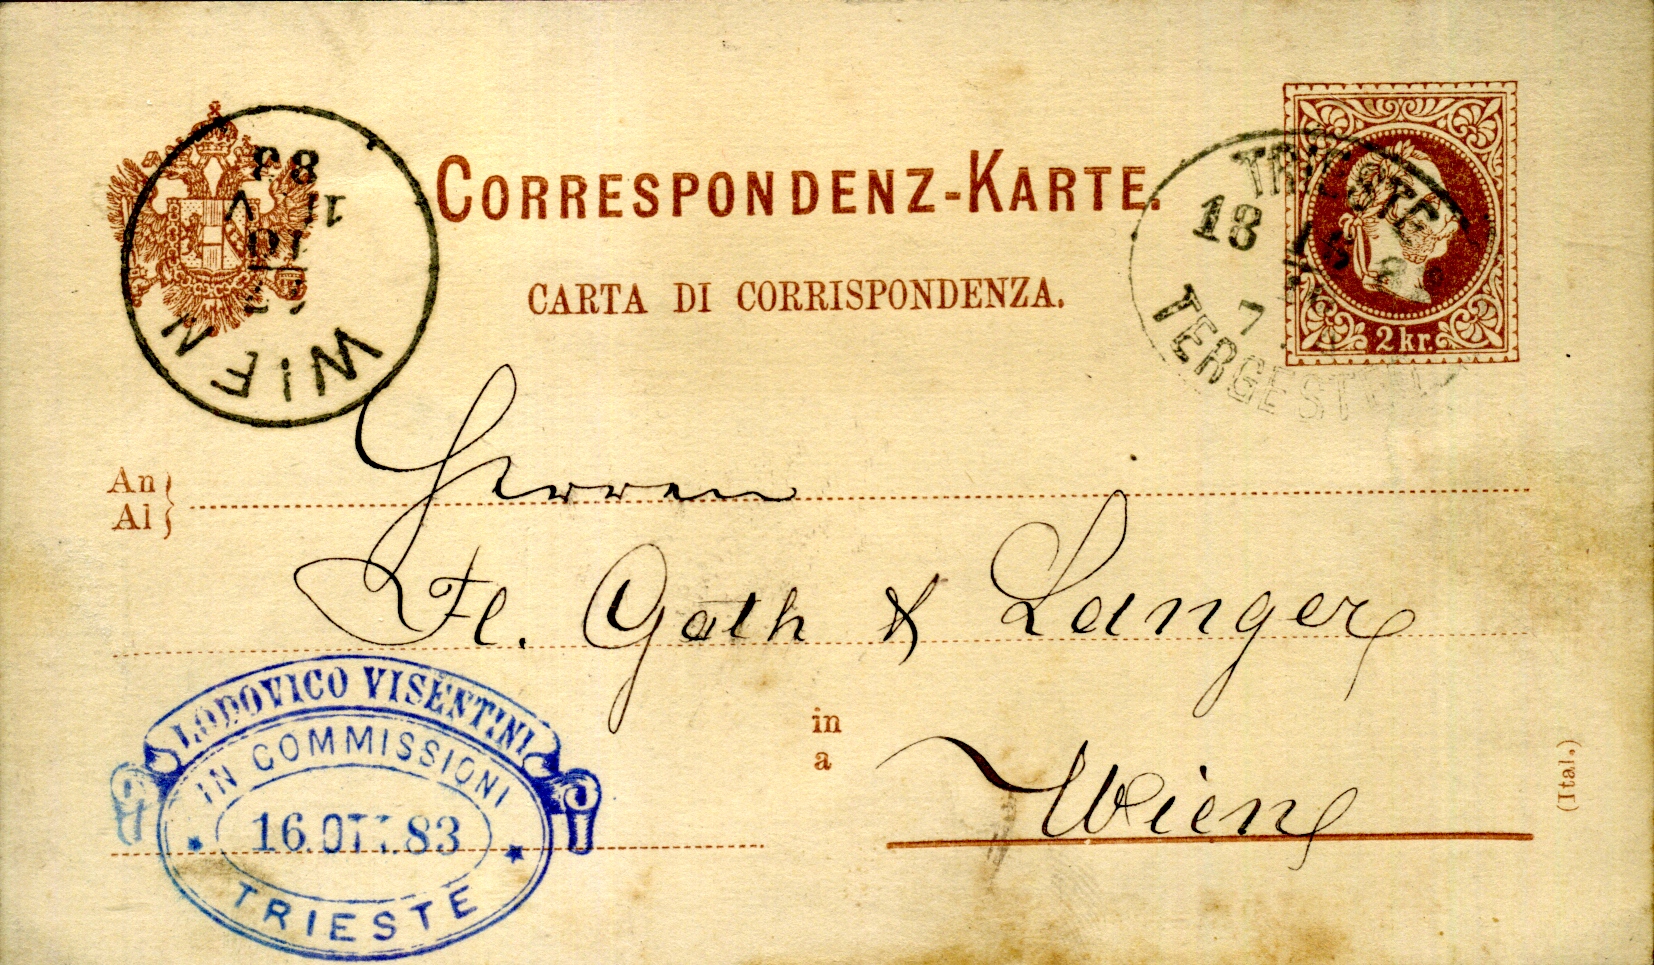 CORRESPONDENZ-KARTE.
CARTA DI CORRISPONDENZA.
WIEN
83
TRIESTE
18
7
TERGESTEO
2 kr.
An
Al
Herren
Fl. Goth & Langer
in
a
Wien
(Ital.)
LODOVICO VISENTINI
IN COMMISSIONI
16.OTT.83
TRIESTE